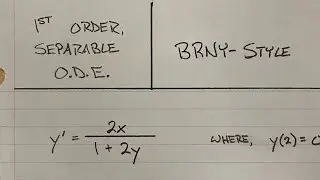 1ST ORDER,
SEPARABLE
O.D.E.
BRNY-STYLE
y' = 2x / 1 + 2y
WHERE, y(2) =